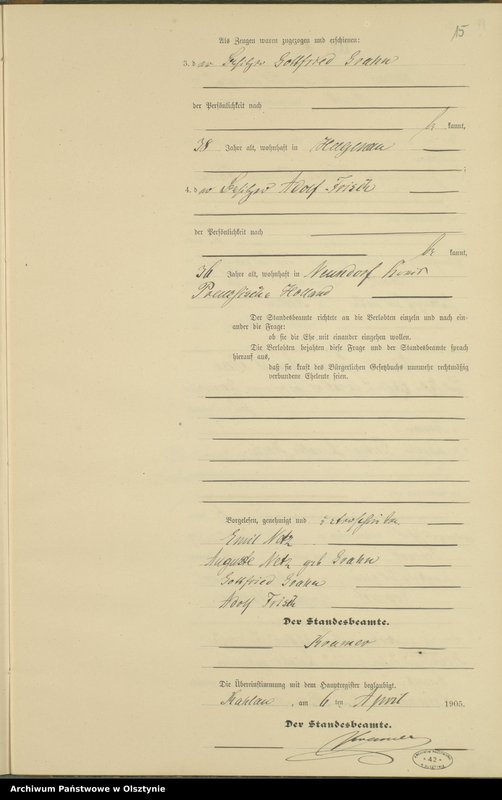 15
Als Zeugen waren zugezogen und erschienen:
3. der Besitzer Gottfried Grahn
der Persönlichkeit nach
be kannt,
38 Jahre alt, wohnhaft in Hagenau
;
4. der Besitzer Adolf Frisch
der Persönlichkeit nach
be kannt,
36 Jahre alt, wohnhaft in Neundorf Kreis
Preussisch Holland
Der Standesbeamte richtete an die Verlobten einzeln und nach ein-
ander die Frage:
ob sie die Ehe mit einander eingehen wollen.
Die Verlobten bejahten diese Frage und der Standesbeamte sprach
hierauf aus,
daß sie kraft des Bürgerlichen Gesetzbuchs nunmehr rechtmäßig
verbundene Eheleute seien.
Vorgelesen, genehmigt und unterschrieben
Emil Netz
Auguste Netz geb Grahn
Gottfried Grahn
Adolf Frisch
Der Standesbeamte.
Kramer
Die Übereinstimmung mit dem Hauptregister beglaubigt.
am 6 ten April 1905.
Der Standesbeamte.
Kramer
42
Archiwum Państwowe w Olsztynie